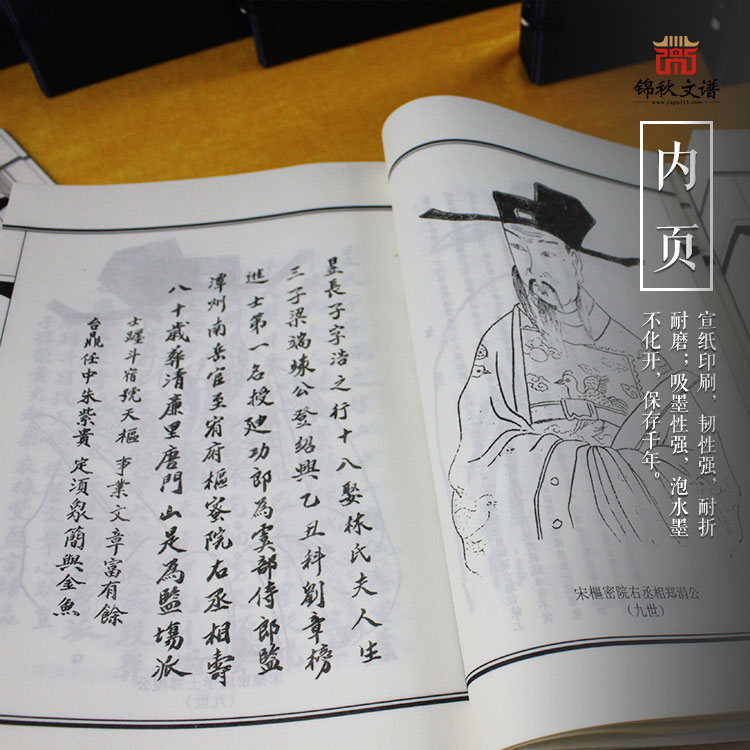 锦秋文谱
www.jiapu315.com
内页
宣纸印刷，韧性强，耐折
耐磨；吸墨性强，泡水墨
不化开，保存千年。
宋樞密院右丞相郑涓公
（九世）
昱長子字浩之行十八娶林氏夫人生
三子梁端竦公登紹興乙丑科劉章榜
進士第一名授廸功郎為虞部侍郎監
潭州南岳官至宥府樞密院右丞相壽
八十歲葬清廉里唐門山是為監塲派
士躔斗宿號天樞 事業文章富有餘
台鼎任中朱紫貴 定須象簡與金魚